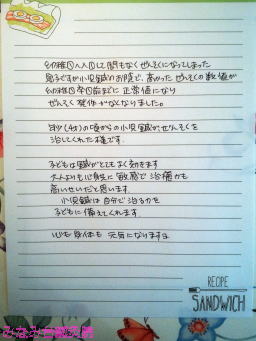 幼稚園へ入園して間もなくぜんそくになってしまった
息子ですが小児鍼のお陰で、高かったぜんそくの数値が
幼稚園卒園前までに正常値になり
ぜんそく発作がなくなりました。
幼少(4才)の頃からの小児鍼がぜんそくを
治してくれた様です。
子どもは鍼がとてもよく効きます
大人よりも心身共に敏感で治癒力も
高いせいだと思います。
小児鍼は自分で治る力を
子どもに備えてくれます。
心も身体も元気になります
RECIPE
SANDWICH
みなみ台鍼灸院